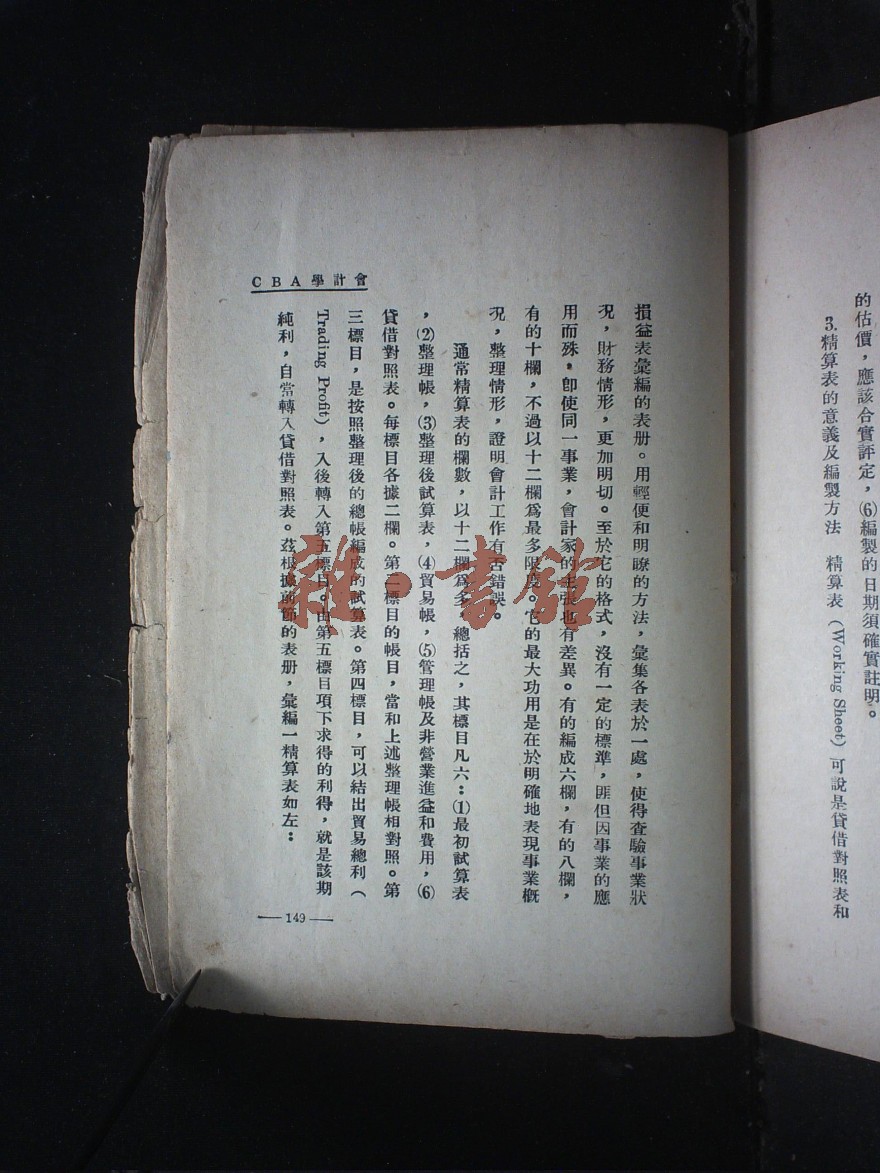 的估價，應該合實評定，(6)編製的日期須確實註明。
3.精算表的意義及編製方法　精算表（Working Sheet）可說是貸借對照表和
損益表彙編的表册。用輕便和明瞭的方法，彙集各表於一處，使得查驗事業狀
況，財務情形，更加明切。至於它的格式，沒有一定的標準，匪但因事業的應
用而殊，卽使同一事業，會計家的主張也有差異。有的編成六欄，有的八欄，
有的十欄，不過以十二欄爲最多限度。它的最大功用是在於明確地表現事業概
況，整理情形，證明會計工作有否錯誤。
通常精算表的欄數，以十二欄爲多，總括之，其標目凡六：(1)最初試算表
，(2)整理帳，(3)整理後試算表，(4)貿易帳，(5)管理帳及非營業進益和費用，(6)
貸借對照表。每標目各據二欄。第二標目的帳目，當和上述整理帳相對照。第
三標目，是按照整理後的總帳編成的試算表。第四標目，可以結出貿易總利（
Trading Profit），入後轉入第五標目。由第五標目項下求得的利得，就是該期
純利，自當轉入貸借對照表。茲根據前節的表册，彙編一精算表如左：
CBA學計會
—149—
雜·書館